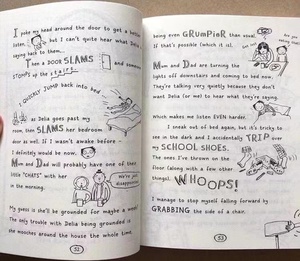 I poke my head around the door to get a better
listen, but I can't quite hear what Delia
saying back to them...
Then a DOOR SLAMS and someone
STOMPS up the stairs.
I QUICKLY JUMP back into bed
as Delia goes past my
room, then SLAMS her bedroom
door as well. If I wasn't awake before -
I definitely would be now.
Mum and Dad will probably have one of their
little "CHATS" with her
in the morning.
We're just disappointed
My guess is she'll be grounded for maybe a week?
The only trouble with Delia being grounded is
she mooches around the house the whole time.
52
being even GRUMPIER than usual.
If that's possible (which it is).
Mum and Dad are turning the
lights off downstairs and coming to bed now.
They're talking very quietly because they don't
want Delia (or me) to hear what they're saying.
Which makes me listen EVEN harder.
I sneak out of bed again, but it's tricky to
see in the dark and I accidentally TRIP over
my SCHOOL SHOES.
The ones I've thrown on the
floor (along with a few other
things).
WHOOPS!
I manage to stop myself falling forward by
GRABBING the side of a chair.
53